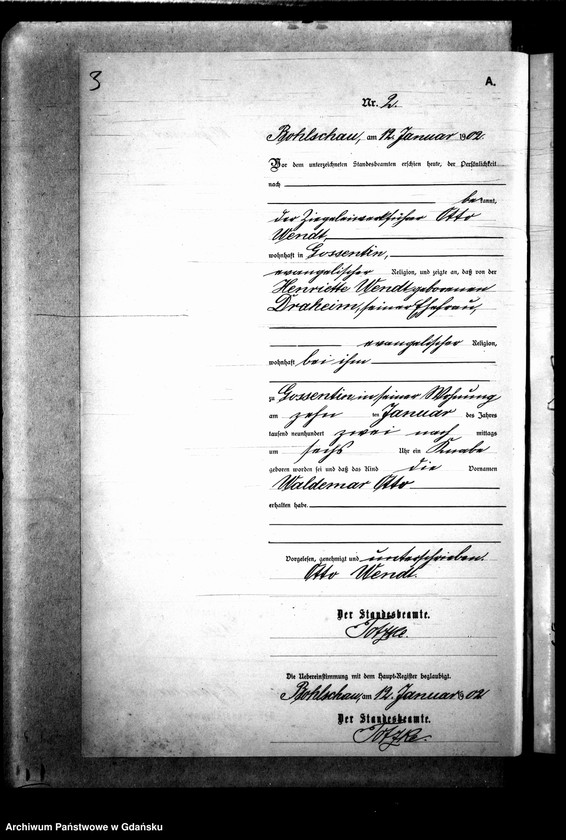 3
A.
Nr. 2.
Bohlschau, am 12. Januar 1902.
Vor dem unterzeichneten Standesbeamten erschien heute, der Persönlichkeit
nach
bekannt,
der Ziegeleiwerkführer Otto
Wendt,
wohnhaft in Gossentin,
evangelischer Religion, und zeigte an, daß von der
Henriette Wendt geborenen
Draheim, seiner Ehefrau,
evangelischer Religion,
wohnhaft bei ihm
zu Gossentin in seiner Wohnung
am zehnten Januar des Jahres
tausend neunhundert zwei nachmittags
um sechs Uhr ein Knabe
geboren worden sei und daß das Kind die Vornamen
Waldemar Otto
erhalten habe.
Vorgelesen, genehmigt und unterschrieben.
Otto Wendt.
Der Standesbeamte.
Totzke.
Die Uebereinstimmung mit dem Haupt-Register beglaubigt.
Bohlschau, am 12. Januar 1902
Der Standesbeamte.
Totzke.
Archiwum Państwowe w Gdańsku